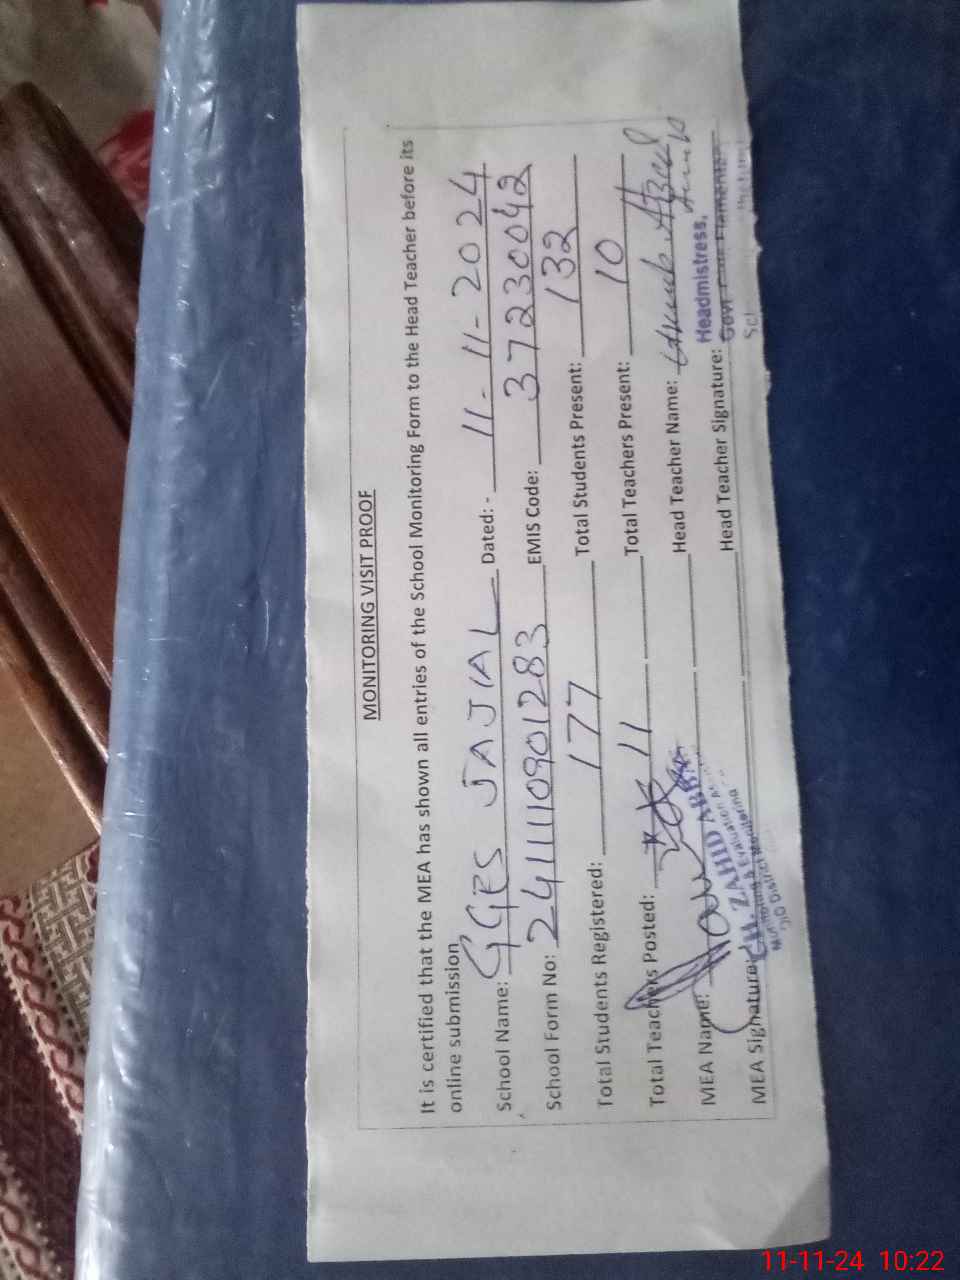 MONITORING VISIT PROOF
It is certified that the MEA has shown all entries of the School Monitoring Form to the Head Teacher before its
online submission
School Name: GGES JAJIAL Dated: - 11-11-2024
School Form No: 2411110901283 EMIS Code: 37230042
Total Students Registered: 177 Total Students Present: 132
Total Teachers Posted: 11 Total Teachers Present: 10
MEA Name: Head Teacher Name:
CH. ZAHID ABB
& Evaluation
Headmistress,
MEA Signature: Head Teacher Signature:
Govt. Elementary
District
11-11-24 10:22